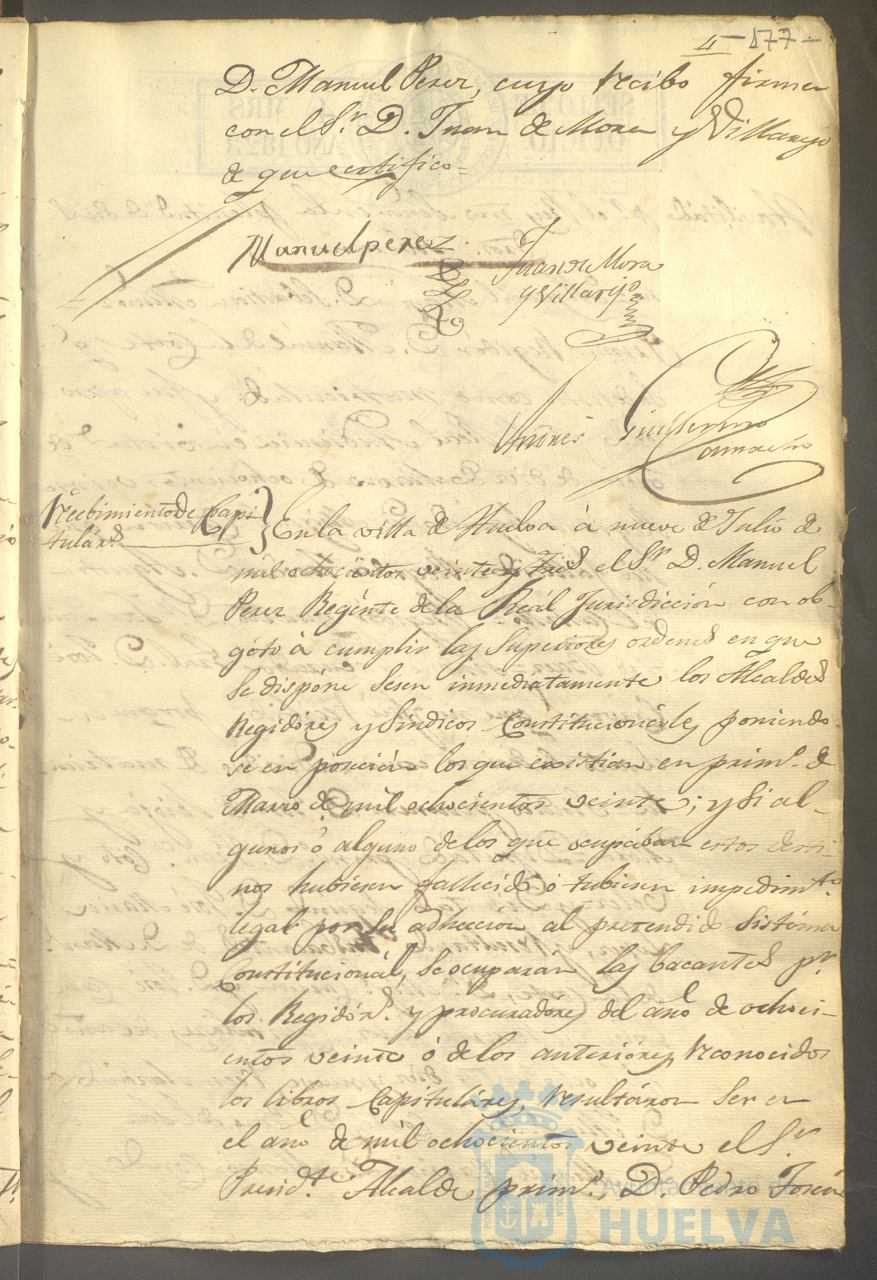 4 - 177 -
D. Manuel Perez, cuyo recibo firma
con el Sr. D. Juan de Mora y Villarejo
de que certifico =
Manuel perez
Juan de Mora
y Villarejo
Andres Guillermo
Camacho
Recibimiento de Capi-
tulares
En la villa de Huelva à nueve de Julio de
mil ochocientos veinte y tres el Sr. D. Manuel
Perez Regénte de la Reál Jurisdicción con ob-
géto à cumplir las Superiores ordenes en que
se dispone sesen inmediatamente los Alcaldes
Regidóres y Síndicos Constitucionales poniendo-
se en poseción los que existian en prim.º de
Marzo de mil ochocientos veinte; y si al-
gunos ò alguno de los que ocupaban estos desti-
nos hubiesen fallecido ò tubiesen impedim.to
legal por su adhección al pretendido Sistéma
Constitucionál, se ocuparan las bacantes pr.
los Regidór.s y procuradores del año de ochoci-
entos veinte ó de los anterióres, reconocidos
los libros Capituláres, resultáron ser en
el año de mil ochocientos veinte el Sr.
Presid.te Alcalde prim.º, D. Pedro José
HUELVA